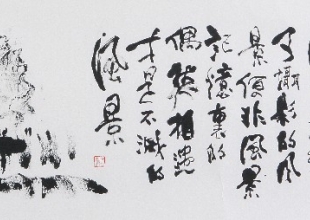 了攝影的風
景便非風景
記憶裏的
偶然相遇
才是不滅的
風景